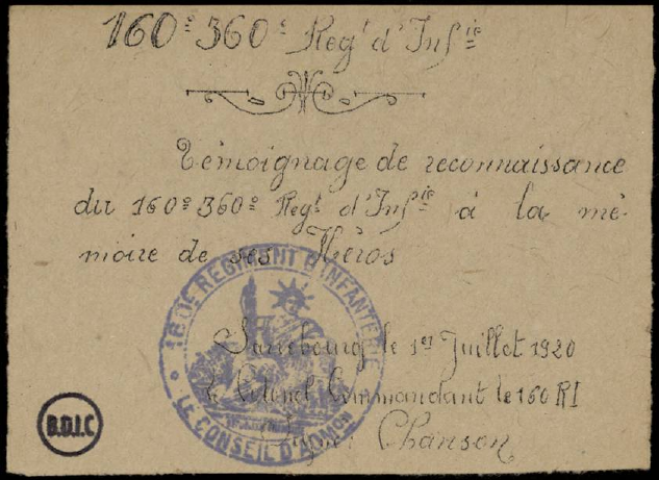 160e 360e Regt d'Infie
Témoignage de reconnaissance
du 160e 360e Regt d'Infie à la mé-
moire de ses Héros
160e REGIMENT D'INFANTERIE
LE CONSEIL D'ADMON
Sarrebourg le 1er Juillet 1920
Le Colonel Commandant le 160 RI
Signé: Chanson
B.D.I.C